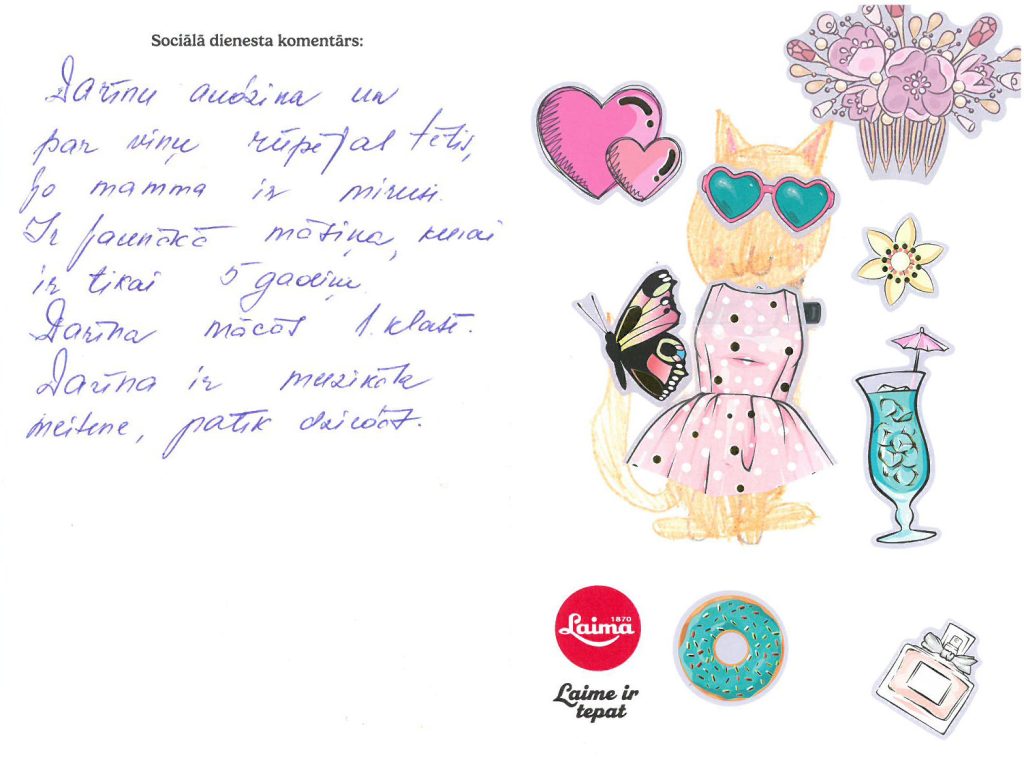 Sociālā dienesta komentārs:
Darīnu audzina un
par viņu rūpējas tētis,
jo mamma ir mirusi.
Ir jaunākā māsiņa, kurai
ir tikai 5 gadiņi.
Darīna mācās 1. klasē.
Darīna ir muzikāla
meitene, patīk dziedāt.
Laima
1870
Laime ir
tepat